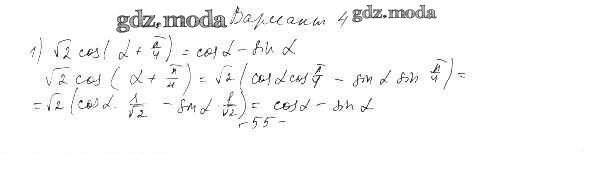 gdz.moda Вариант 4 gdz.moda
1) √2 cos(α + π/4) = cosα - sin α
√2 cos (α + π/4) = √2 (cosα cos π/4 - sinα sin π/4) =
= √2 (cosα · 1/√2 - sinα · 1/√2) = cosα - sinα
-55-